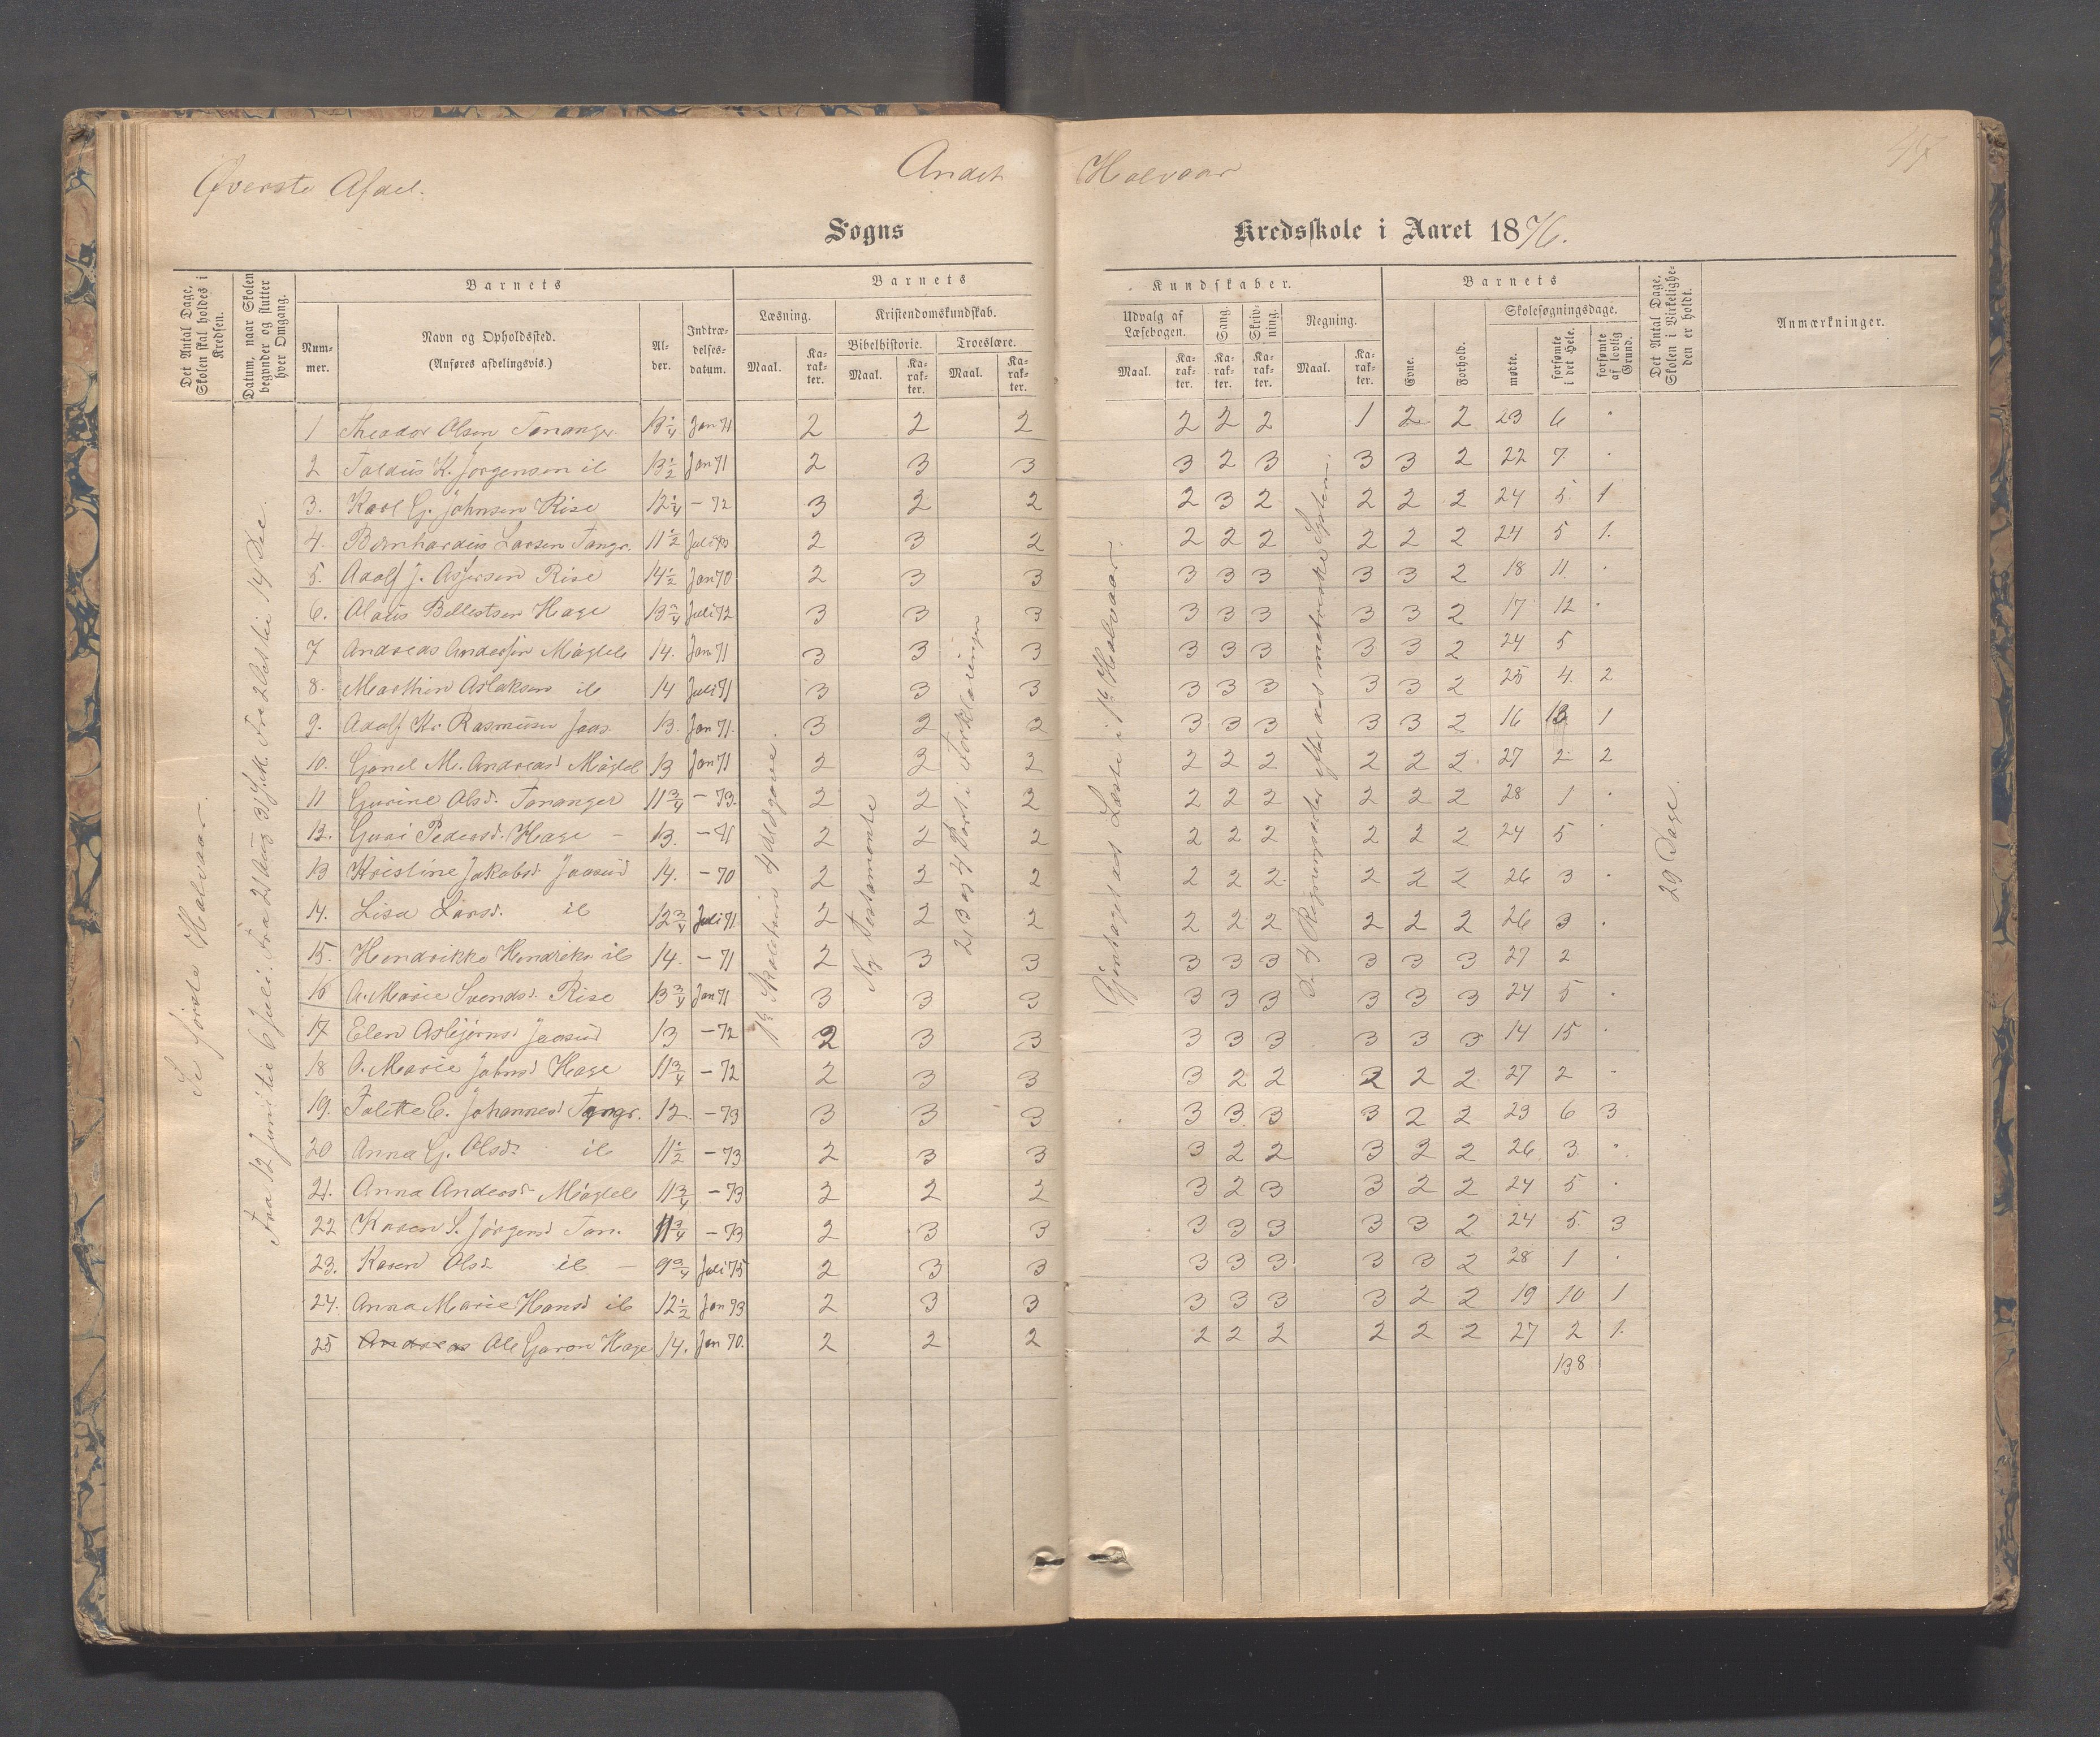 Øverste Afdel.
Andet Halvaar
Sogns Kredsskole i Aaret 1876.
Det Antal Dage, Skolen skal holdes i Kredsen.
Datum, naar Skolen begynder og slutter hver Omgang.
Barnets
Nummer.
Navn og Opholdssted.
(Anføres afdelingsvis.)
Alder.
Indtrædelsesdatum.
Barnets Kundskaber.
Læsning.
Maal. Karakter.
Kristendomskundskab.
Bibelhistorie. Troeslære.
Maal. Karakter. Maal. Karakter.
Udvalg af Læsebogen.
Maal. Karakter.
Sang. Karakter.
Skrivning. Karakter.
Regning.
Maal. Karakter.
Barnets
Evne. Forhold.
Skolesøgningsdage.
mødte. forsømte i det Hele. forsømte af lovlig Grund.
Det Antal Dage, Skolen i Virkeligheden er holdt.
Anmærkninger.
Se første Halvaar.
Fra 12 Juni til 6 Juli. Fra 21 Aug
14 Dec.
Ny Testamente
2, 3 og 4 Part i Forklaringen
Gjentaget det Læste i 1ste Halvaar.
29 Dage.
1 Theodor Olsen Tananger 13 1/4 Jan 71 2 2 2 2 2 2 1 2 2 23 6 .
2 Taldus K. Jørgensen il 13 1/2 Jan 71 2 3 3 3 2 3 3 3 2 22 7 .
3. Karl G. Johnsen Risa 12 1/4 - 72 3 2 2 2 3 2 2 2 2 24 5. 1
4. Bernhardus Larsen Tangr. 11 1/2 Juli 73 2 3 2 2 2 2 2 2 2 24 5 1.
5. Adolf J. Asjersen Risa 14 1/2 Jan 70 2 3 3 3 3 3 3 3 2 18 11. .
6. Olaus Bellestsen Haga 13 3/4 Juli 72 3 3 3 3 3 3 3 3 2 17 12 .
7 Andreas Andersen Møgleb 14. Jan 71 3 3 3 3 3 3 3 3 2 24 5
8. Marthin Aslaksen il 14 Juli 71 3 3 3 3 3 3 3 3 2 25 4. 2
9. Adolf Kr Rasmusen Jaas. 13. Jan 71. 3 2 2 3 3 3 3 3 2 16 13 1
10. Gunel M. Andreasd Møgleb 13 Jan 71 2 2 2 2 2 2 2 2 2. 27 2. 2
11 Gurine Olsd. Tananger 11 3/4 - 73. 2 2 2 2 2 2 2 2 2 28 1 .
12. Guri Pedersd. Haga - 13. - 71 2 2 2 2 2 2 2 2 2 24 5 .
13 Kristine Jakobsd Jaasund 14. - 70 2 2 2 2 2 2. 2 2 2 26 3 .
14. Lisa Larsd. il 12 3/4 Juli 71 2 2 2 2 2 2 2 2 2 26 3 .
15. Hendrikke Hendriks il 14. - 71 2 3 3 3 3 3 3 3 3 27 2
16 A. Marie Svendsd. Risa 13 3/4 Jan 71 3 3 3 3 3 3 3 3 3 24 5 .
17 Elen Asbjørnsd Jaasund 13 - 72 2 3 3 3 3 3 3 3 3 14 15 .
18 O. Marie Johnsd Haga 11 3/4 - 72 2 3 3 3 2 2 2 2 2 27 2 .
19. Talette E. Johannesd Tangr. 12 - 73 3 3 3 3 3 3 3 2 2 23 6 3
20 Anna G. Olsd. il 11 1/2 - 73 2 3 3 3 2 2 3 2 2 26 3. .
21. Anna Andersd Møgleb 11 3/4 - 73 2 2 2 3 2 3 3 2 2 24 5 .
22 Karen S. Jørgensd Tan. 11 3/4 - 73 2 3 3 3 3 3 3 3 2 24 5. 3
23. Karen Olsd il - 9 3/4 Juli 75 2 3 3 3 3 3 3 3 2 28 1 .
24. Anna Marie Hansd il 12 1/2 Jan 73 2 3 3 3 3 3 3 2 2 19 10 1
25 Andreas Ole Garon Haga 14. Jan 70. 2 2 2 2 2 2 2 2 2 27 2 1.
138